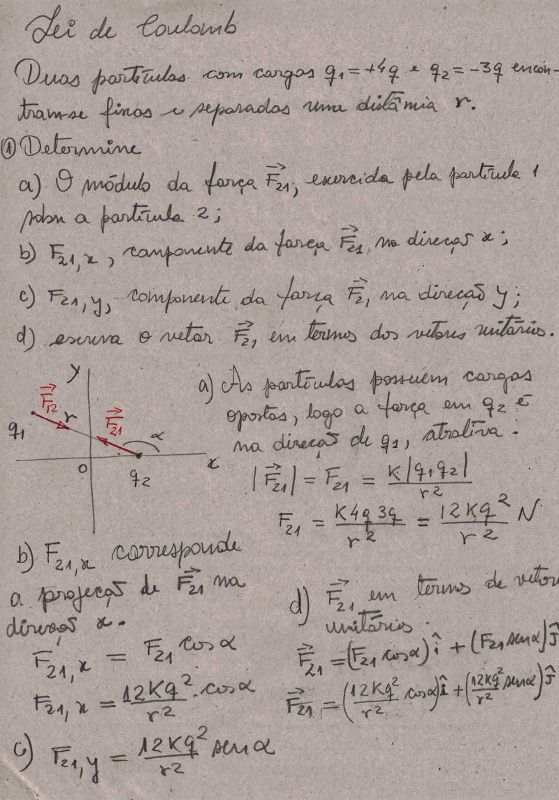 Lei de Coulomb
Duas partículas com cargas q₁ = +4q e q₂ = -3q encon-
tram-se fixas e separadas uma distância r.
① Determine
a) O módulo da força F⃗₂₁, exercida pela partícula 1
sobre a partícula 2;
b) F₂₁,ₓ, componente da força F⃗₂₁ na direção x;
c) F₂₁,y, componente da força F⃗₂₁ na direção y;
d) escreva o vetor F⃗₂₁ em termos dos vetores unitários.
y
F⃗₁₂
r
F⃗₂₁
α
q₁
0
q₂
x
a) As partículas possuem cargas
opostas, logo a força em q₂ é
na direção de q₁, atrativa:
|F⃗₂₁| = F₂₁ = K|q₁q₂|/r²
F₂₁ = K4q3q/r² = 12Kq²/r² N
b) F₂₁,ₓ corresponde
a projeção de F⃗₂₁ na
direção x.
F₂₁,ₓ = F₂₁ cosα
F₂₁,ₓ = 12Kq²/r² · cosα
c) F₂₁,y = 12Kq²/r² senα
d) F⃗₂₁ em termos de vetores
unitários.
F⃗₂₁ = (F₂₁ cosα) î + (F₂₁ senα) ĵ
F⃗₂₁ = (12Kq²/r² cosα) î + (12Kq²/r² senα) ĵ